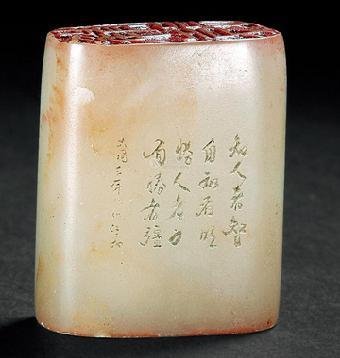 知人者智
自知者明
勝人者力
自勝者彊
三年